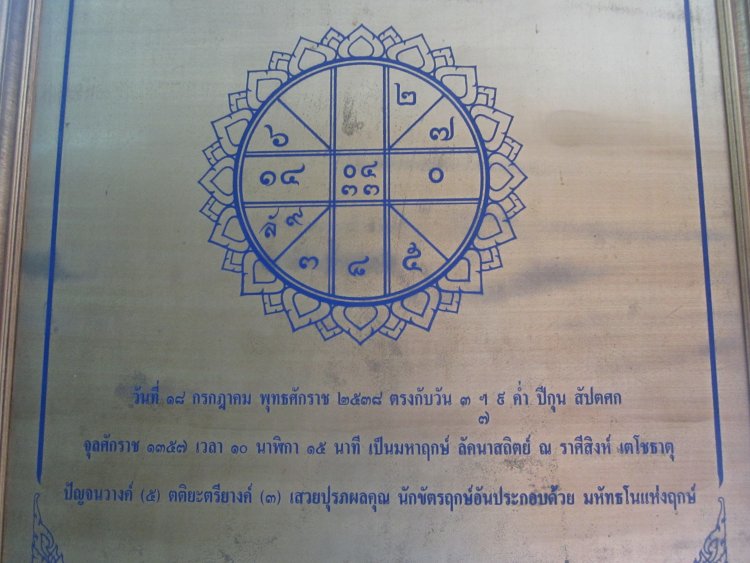 ๒
๖ ๗
๑๔ ๐๔ ๐
๓๓
ลั ๙
๓ ๘ ๕
วันที่ ๑๘ กรกฎาคม พุทธศักราช ๒๕๓๘ ตรงกับวัน ๓ ฯ ๙ ค่ำ ปีกุน สัปตศก
๗
จุลศักราช ๑๓๕๗ เวลา ๑๐ นาฬิกา ๑๕ นาที เป็นมหาฤกษ์ ลัคนาสถิตย์ ณ ราศีสิงห์ เตโชธาตุ
ปัญจนวางค์ (๕) ตติยะตรียางค์ (๓) เสวยปุรภผลคุณ นักขัตรฤกษ์อันประกอบด้วย มหัทธโนแห่งฤกษ์